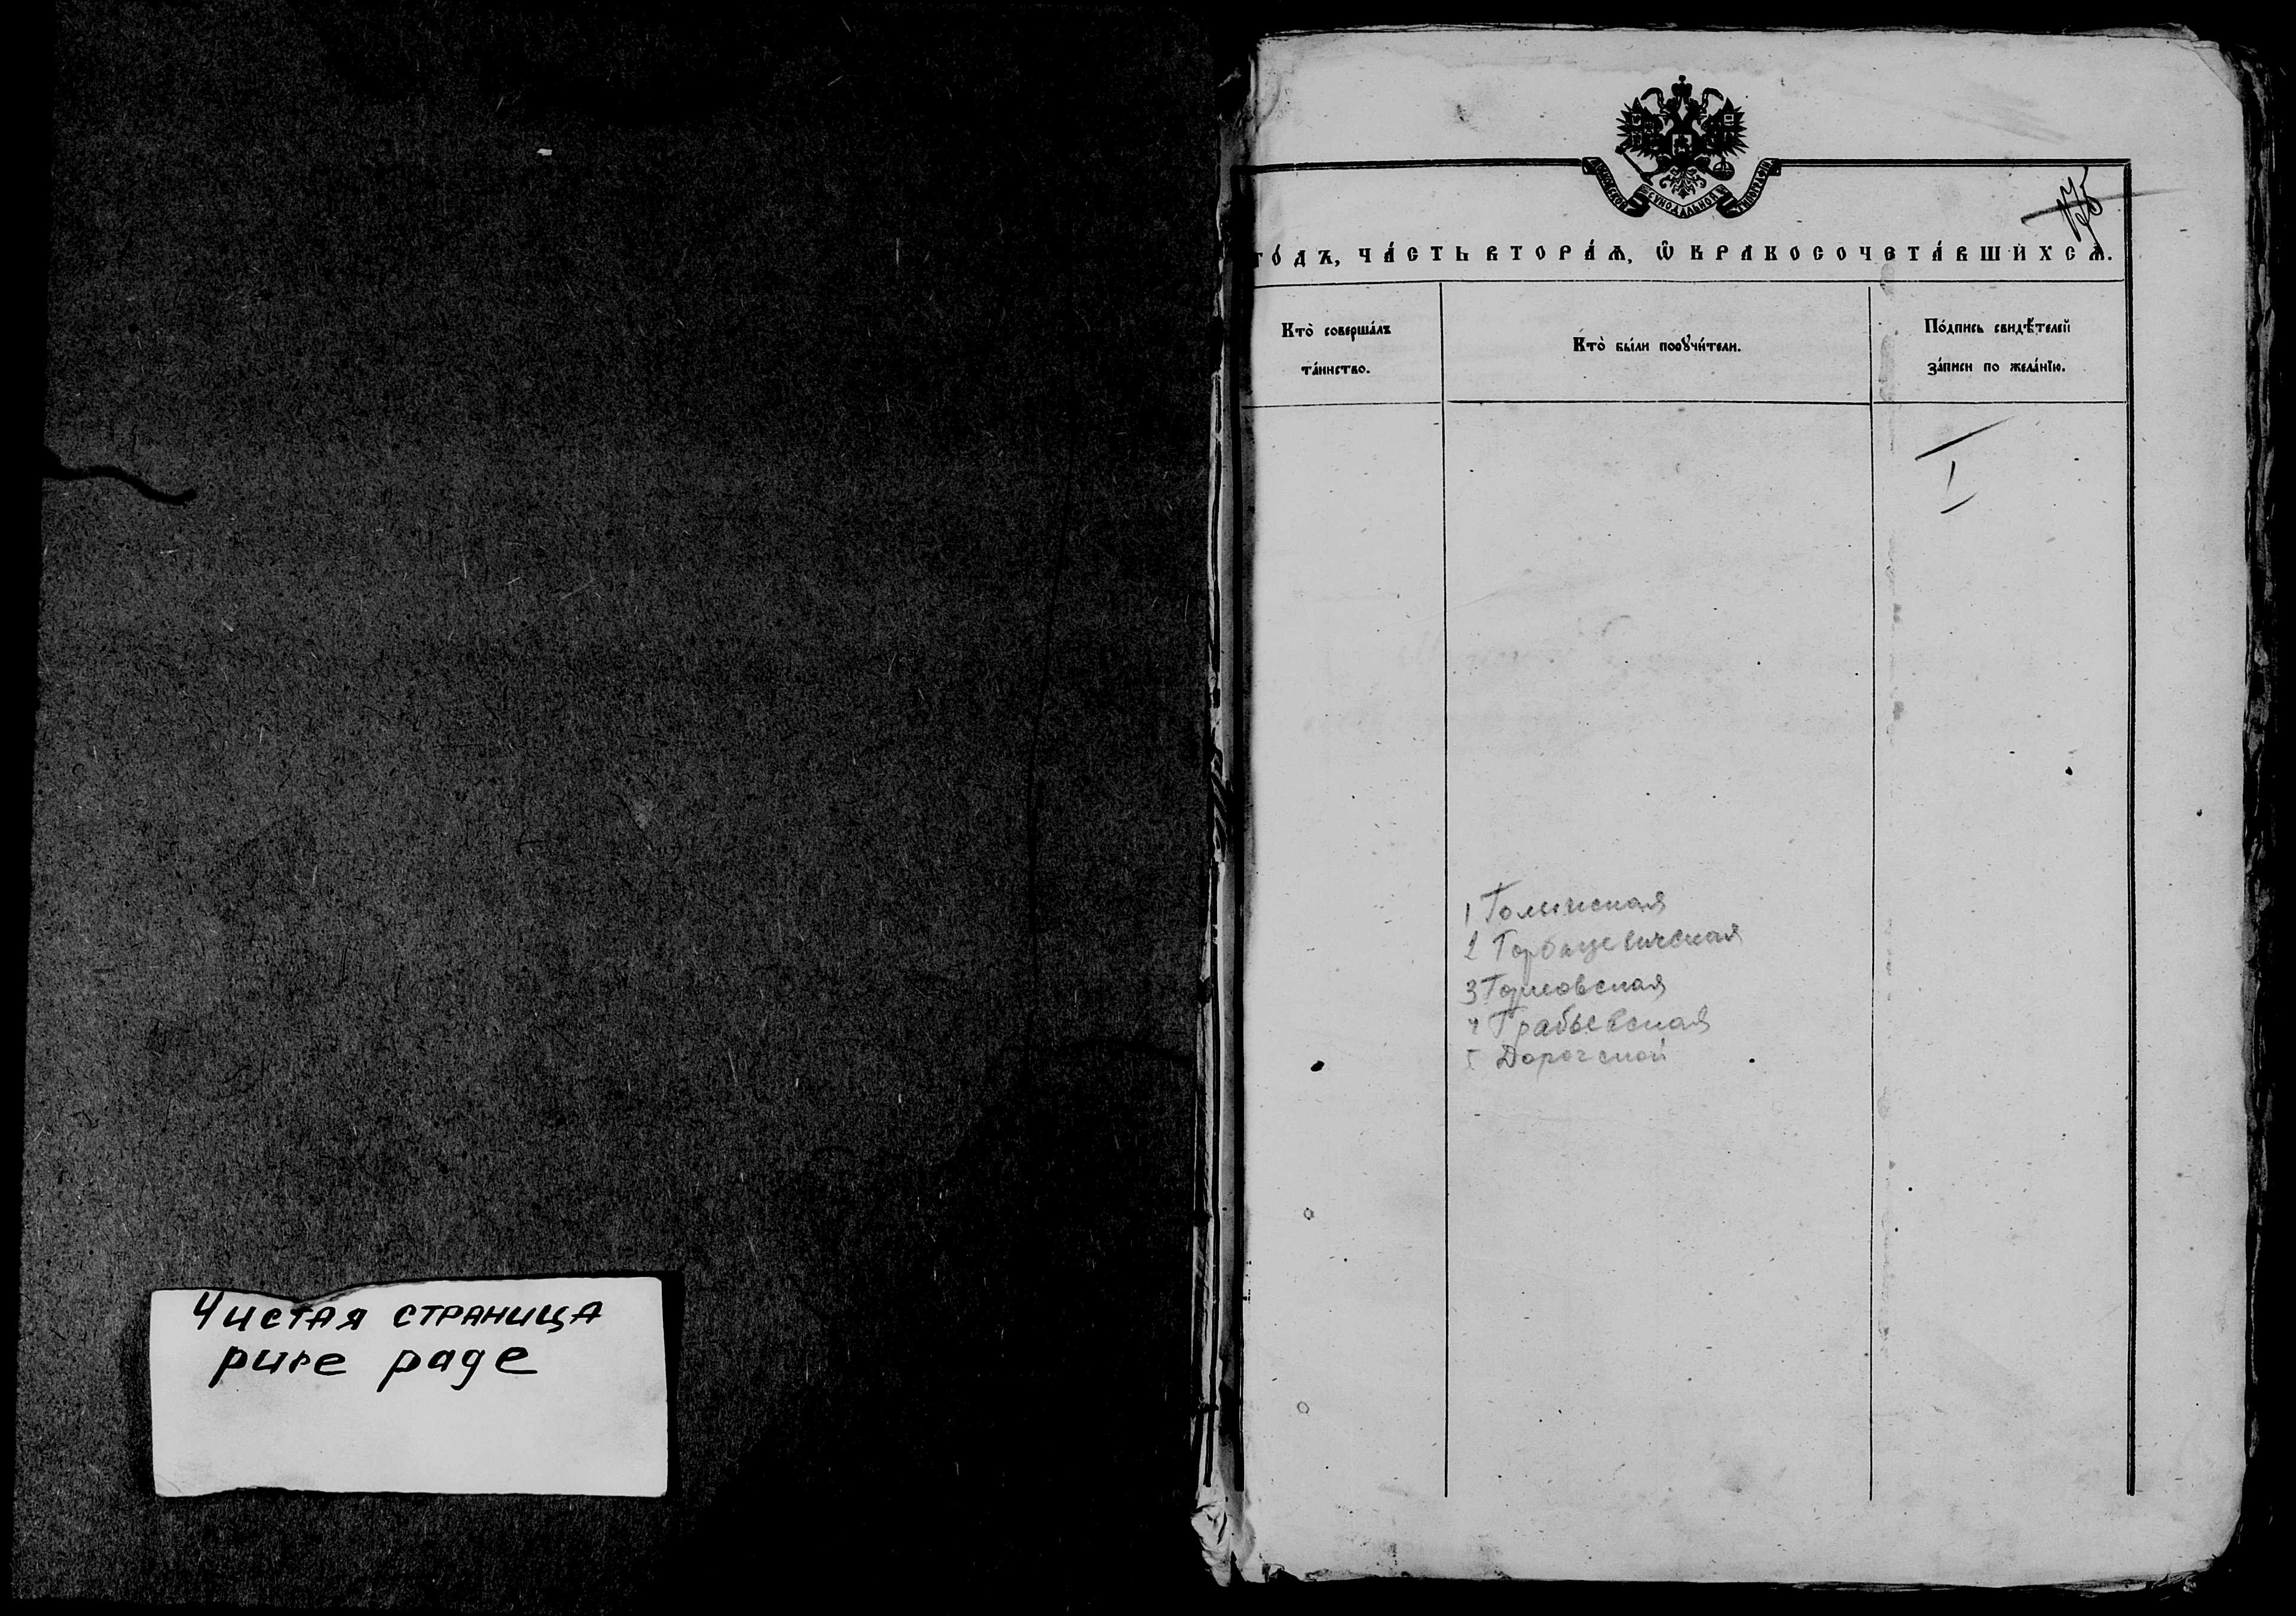 Чистая страница
pure page
МОСКОВСКОЙ СѴНОДАЛЬНОЙ ТИПОГРАФІИ
го́дъ, ча́сть втора́ѧ, ѡ҆ бракосочета́вшихсѧ.
Кто̀ соверша́лъ
та́инство.
Кто̀ бы́ли порꙋчи́тели.
По́дпись свидѣ́телей
за́писи по жела́нїю.
I
1 Голынская
2 Горбацевичская
3 Горковская
4 Грабьевская
5 Дорогской